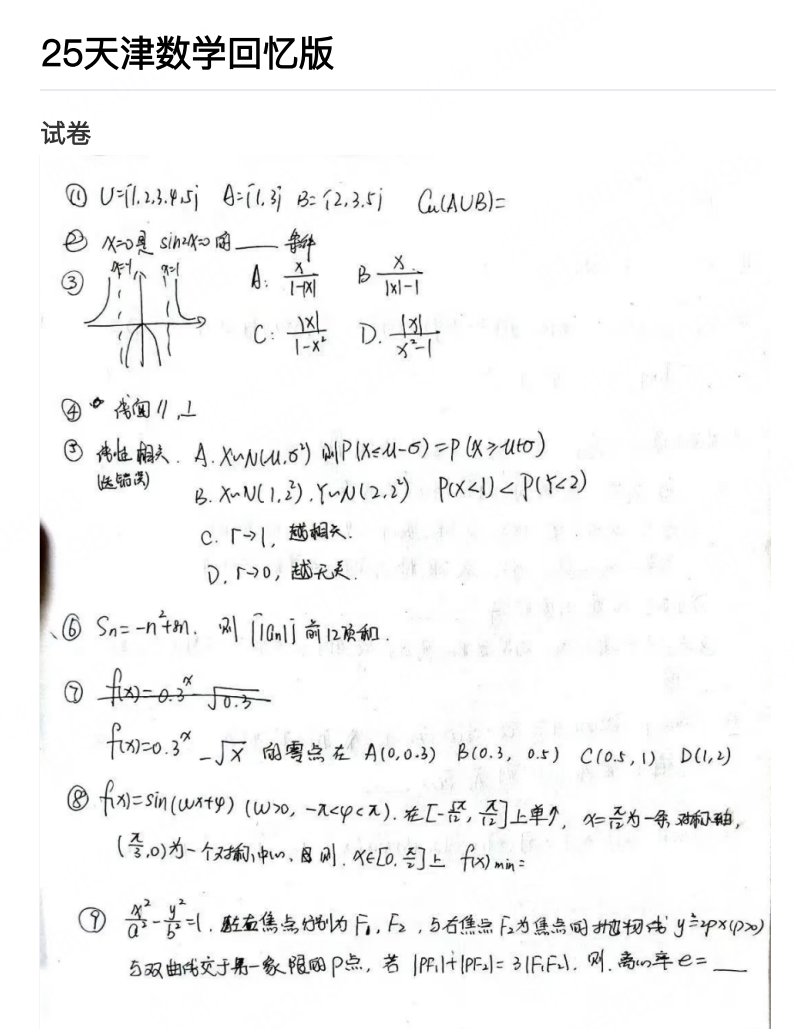 25天津数学回忆版
试卷
① U={1.2.3.4.5} A={1.3} B={2.3.5} Cu(A∪B)=
② x=0是 sin2x=0 的 ____ 条件
③ x=-1 x=1 A: x/(1-|x|) B x/(|x|-1)
C: |x|/(1-x²) D. |x|/(x²-1)
④ 线面 //,⊥
⑤ 线性相关. A. X~N(μ,σ²) 则P(X≤μ-σ)=P(X≥μ+σ)
(选错误) B. X~N(1,2²), Y~N(2,2²) P(X<1)<P(Y<2)
C. r→1, 越相关.
D. r→0, 越无关.
⑥ Sn=-n²+8n. 则 {|an|} 前12项和.
⑦ f(x)=0.3^x √0.3
f(x)=0.3^x -√x 的零点在 A(0,0.3) B(0.3, 0.5) C(0.5,1) D(1,2)
⑧ f(x)=sin(ωx+φ) (ω>0, -π<φ<π). 在[-5π/12, π/12]上单↑, x=π/12为一条对称轴,
(π/3,0)为一个对称中心, 则. x∈[0,π/2]上 f(x)min=
⑨ x²/a²-y²/b²=1. 左右焦点分别为 F₁, F₂, 与右焦点 F₂为焦点的抛物线 y²=2px(p>0)
与双曲线交于第一象限的P点, 若 |PF₁|+|PF₂|=3|F₁F₂|. 则. 离心率 e= ____